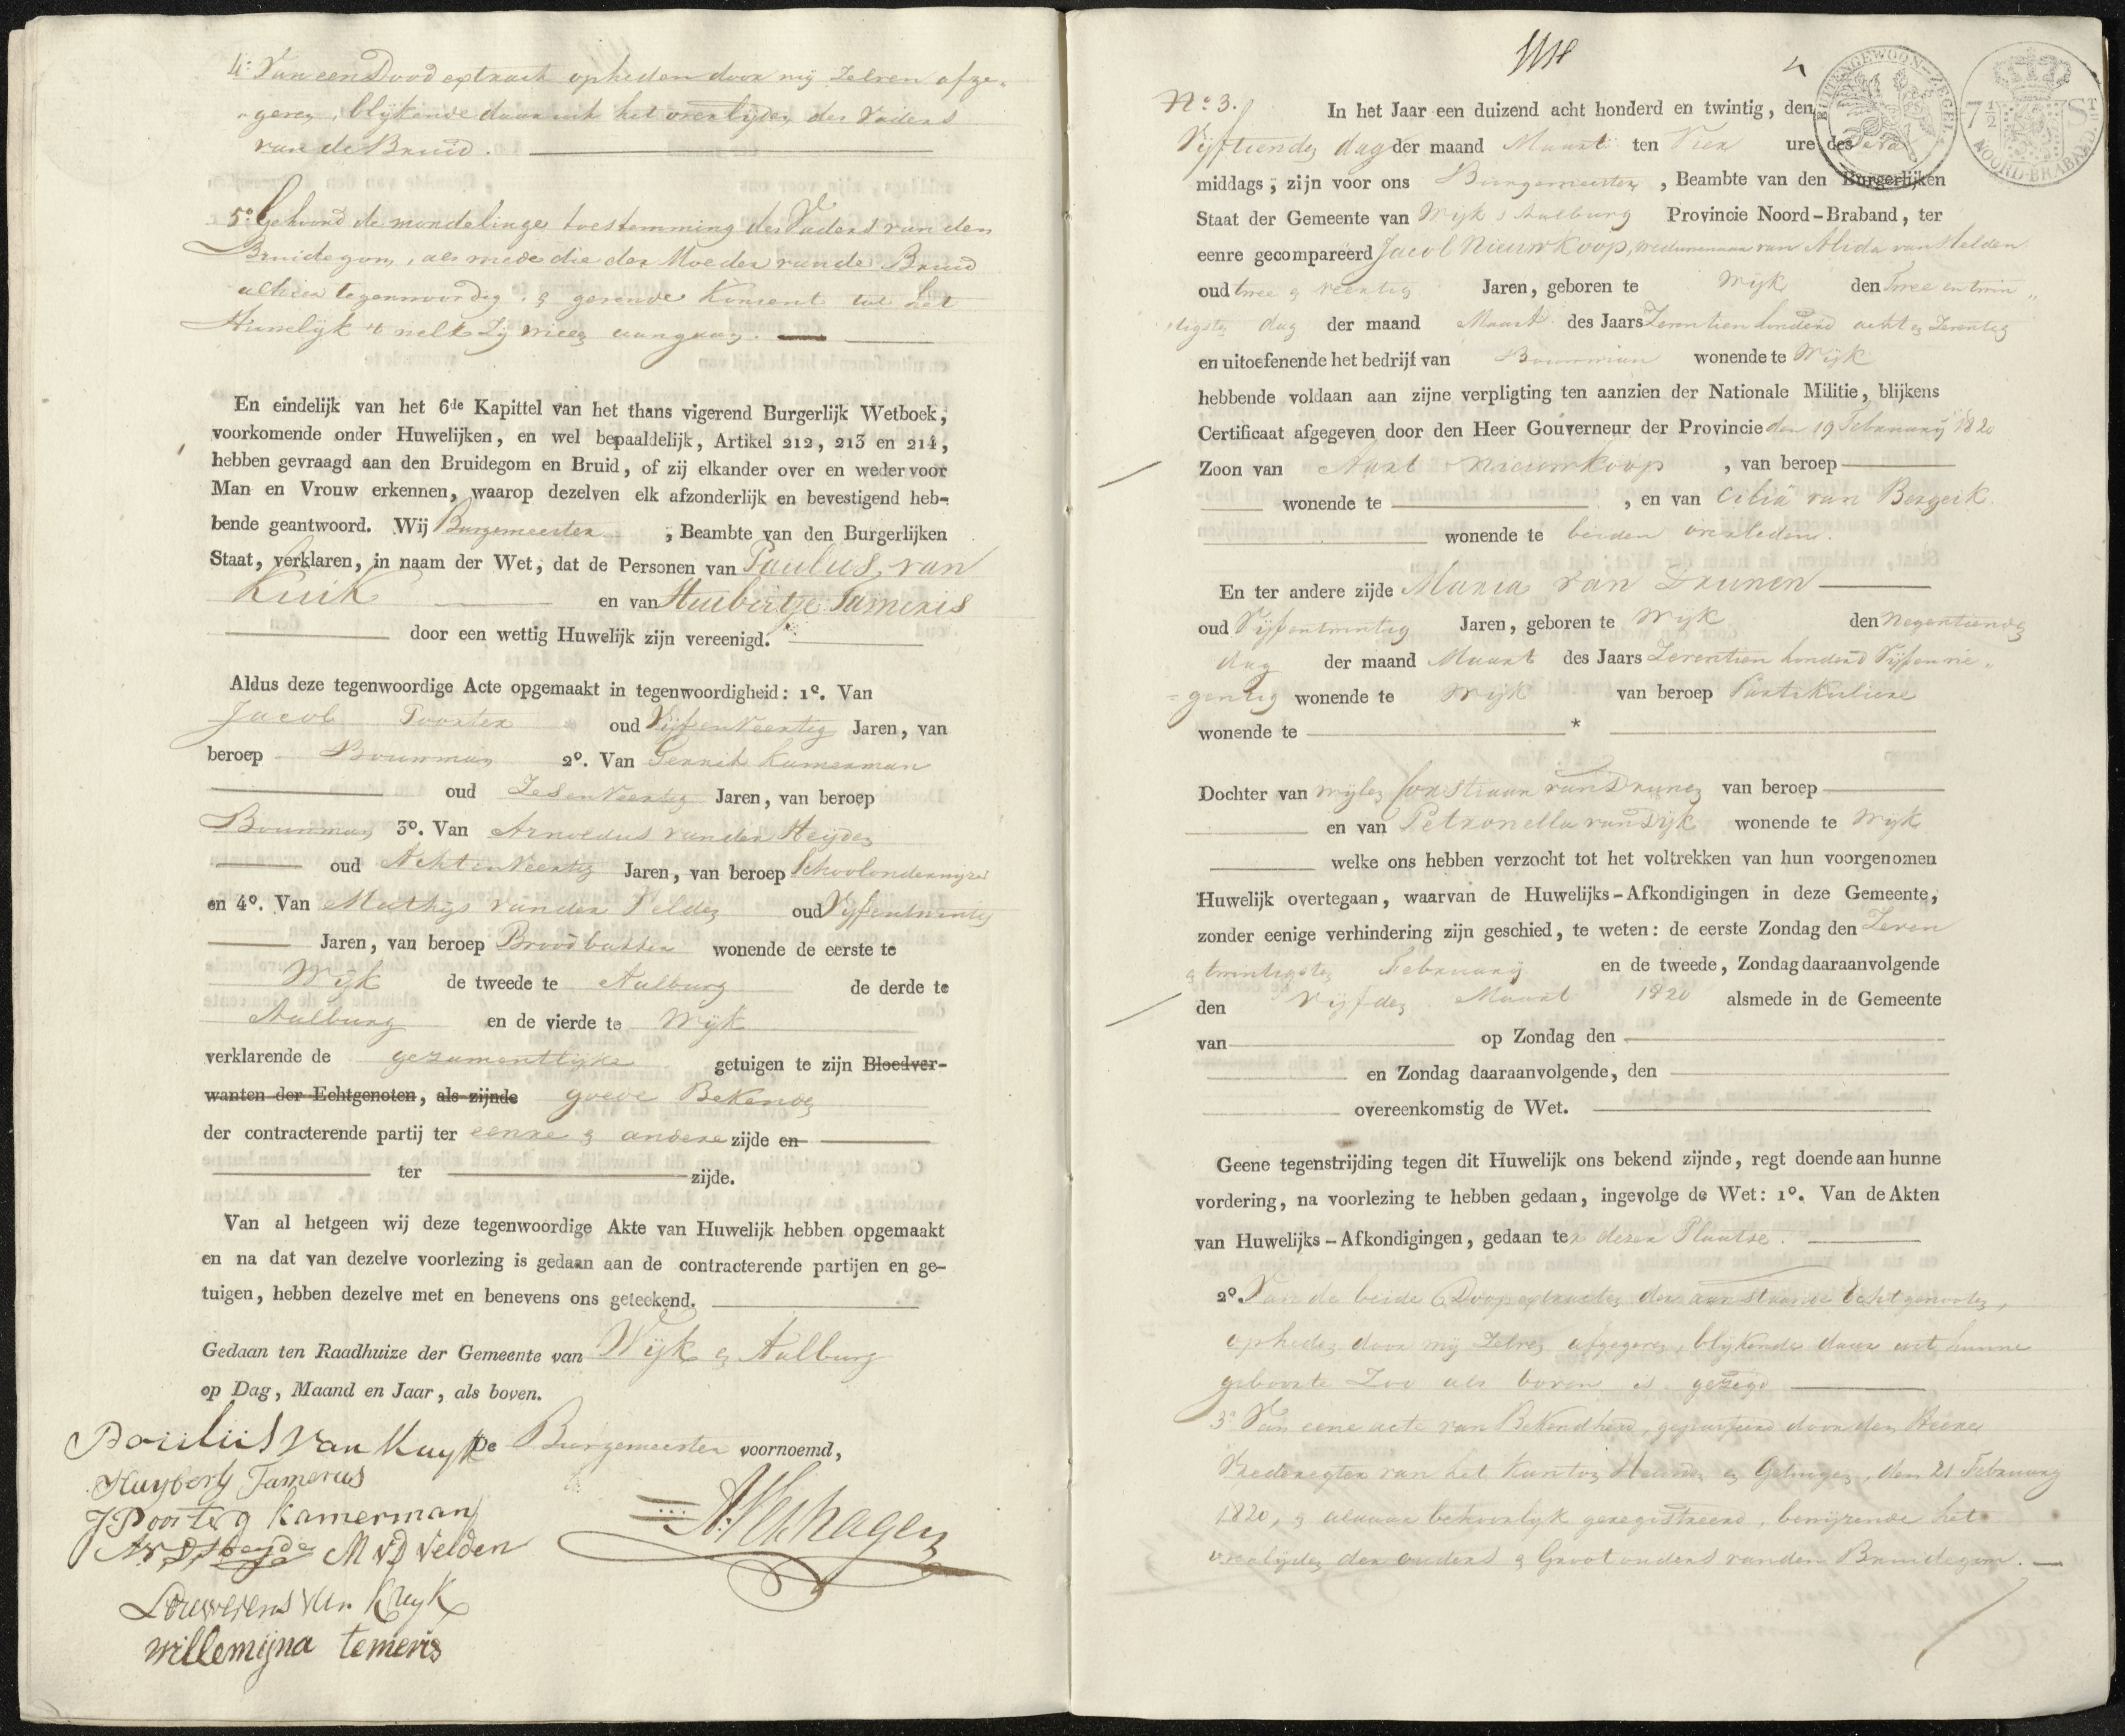 4º Van een Dood extract opheden door mij Zelven afge-
geven, blijkende daar uit het overlijden des Vaders
van de Bruid.
5º Gehoord de mondelinge toestemming des Vaders van den
Bruidegom, als mede die der Moeder van de Bruid
alhier tegenwoordig, & gevende Konsent tot het
Huwelijk 't welk Zij wieez aangaan.
En eindelijk van het 6de Kapittel van het thans vigerend Burgerlijk Wetboek,
voorkomende onder Huwelijken, en wel bepaaldelijk, Artikel 212, 213 en 214,
hebben gevraagd aan den Bruidegom en Bruid, of zij elkander over en weder voor
Man en Vrouw erkennen, waarop dezelven elk afzonderlijk en bevestigend heb-
bende geantwoord. Wij Burgemeester, Beambte van den Burgerlijken
Staat, verklaren, in naam der Wet, dat de Personen van Paulus van
Kuik en van Huibertje Tameris
door een wettig Huwelijk zijn vereenigd.
Aldus deze tegenwoordige Acte opgemaakt in tegenwoordigheid: 1º. Van
Jacob Poorter oud Vijfenveertig Jaren, van
beroep Bouwman 2º. Van Gerrit Kamerman
oud Zesenveertig Jaren, van beroep
Bouwman 3º. Van Arnoldus van der Heijden
oud Achtenveertig Jaren, van beroep Schoolonderwyzer
en 4º. Van Mathijs van der Velden oud Vijfentwintig
Jaren, van beroep Broodbakker wonende de eerste te
Wijk de tweede te Aalburg de derde te
Aalburg en de vierde te Wijk
verklarende de gezamentlijke getuigen te zijn Bloedver-
wanten der Echtgenoten, als zijnde goede Bekenden
der contracterende partij ter eenre & andere zijde en
ter zijde.
Van al hetgeen wij deze tegenwoordige Akte van Huwelijk hebben opgemaakt
en na dat van dezelve voorlezing is gedaan aan de contracterende partijen en ge-
tuigen, hebben dezelve met en benevens ons geteekend.
Gedaan ten Raadhuize der Gemeente van Wijk & Aalburg
op Dag, Maand en Jaar, als boven.
De Burgemeester voornoemd,
Poulus van Kuyk
Huyberty Tamerus
J Poorter G Kamerman
A v D Heyde M v D Velden
A. Verhagen
Louwerens van Kuyk
willemijna temeris
Nº 3.
BUITENGEWOON-ZEGEL
7 1/2 St
NOORD-BRABAND
In het Jaar een duizend acht honderd en twintig, den
Vijftienden dag der maand Maart ten Vier ure des Na
middags, zijn voor ons Burgemeester, Beambte van den Burgerlijken
Staat der Gemeente van Wijk & Aalburg Provincie Noord-Braband, ter
eenre gecompareerd Jacob Nieuwkoop, weduwenaar van Alida van Helden
oud twee & veertig Jaren, geboren te Wijk den Twee en twin-
tigsten dag der maand Maart des Jaars Zeventien honderd acht & Zeventig
en uitoefenende het bedrijf van Bouwman wonende te Wijk
hebbende voldaan aan zijne verpligting ten aanzien der Nationale Militie, blijkens
Certificaat afgegeven door den Heer Gouverneur der Provincie den 19 Februarij 1820
Zoon van Aart Nieuwkoop, van beroep
wonende te , en van Cilia van Bergeik
wonende te beiden overleden.
En ter andere zijde Maria van Drunen
oud Vijfentwintig Jaren, geboren te Wijk den Negentienden
dag der maand Maart des Jaars Zeventien honderd Vijfenne-
gentig wonende te Wijk van beroep Partikuliere
wonende te *
Dochter van wijlen Corstiaan van Drunen van beroep
en van Petronella van Dijk wonende te Wijk
welke ons hebben verzocht tot het voltrekken van hun voorgenomen
Huwelijk overtegaan, waarvan de Huwelijks-Afkondigingen in deze Gemeente,
zonder eenige verhindering zijn geschied, te weten: de eerste Zondag den Zeven
& twintigsten Februarij en de tweede, Zondag daaraanvolgende
den Vijfden Maart 1820 alsmede in de Gemeente
van op Zondag den
en Zondag daaraanvolgende, den
overeenkomstig de Wet.
Geene tegenstrijding tegen dit Huwelijk ons bekend zijnde, regt doende aan hunne
vordering, na voorlezing te hebben gedaan, ingevolge de Wet: 1º. Van de Akten
van Huwelijks-Afkondigingen, gedaan ter dezer Plaatse.
2º. Van de beide Doopextracten der aanstaande Echtgenooten,
opheden door mij Zelven afgegeven, blijkende daar uit hunne
geboorte Zoo als boven is gezegd
3º Van eene acte van Bekendheid, gepasseerd door den Heere
Vrederegter van het Kanton Heusden & , den 21 Februarij
1820, & aldaar behoorlijk geregistreerd, bewijzende het
overlijden der ouders & Grootouders van den Bruidegom.